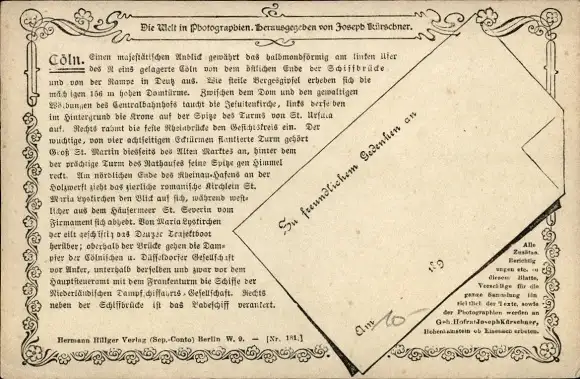 Die Welt in Photographien. Herausgegeben von Joseph Kürschner.
Cöln. Einen majestätischen Anblick gewährt das halbmondförmig am linken Ufer
des R eins gelagerte Cöln von dem östlichen Ende der Schiffbrücke
und von der Rampe in Deutz aus. Wie steile Bergesgipfel erheben sich die
mächtigen 156 m hohen Domtürme. Zwischen dem Dom und den gewaltigen
Wölbungen des Centralbahnhofs taucht die Jesuitenkirche, links derselben
im Hintergrund die Krone auf der Spitze des Turms von St. Ursula
auf. Rechts rahmt die feste Rheinbrücke den Gesichtskreis ein. Der
wuchtige, von vier achtseitigen Ecktürmen flankierte Turm gehört
Groß St. Martin diesseits des Alten Marktes an, hinter dem
der prächtige Turm des Rathauses seine Spitze gen Himmel
reckt. Am nördlichen Ende des Rheinau-Hafens an der
Holzwerft zieht das zierliche romanische Kirchlein St.
Maria Lyskirchen den Blick auf sich, während west-
licher aus dem Häusermeer St. Severin vom
Firmament sich abhebt. Von Maria Lyskirchen
her eilt geschäftig das Deutzer Trajektboot
herüber; oberhalb der Brücke gehen die Dam-
pfer der Cölnischen u. Düsseldorfer Gesellschaft
vor Anker, unterhalb derselben und zwar vor dem
Hauptsteueramt mit dem Frankenturm die Schiffe der
Niederländischen Dampfschiffahrts-Gesellschaft. Rechts
neben der Schiffbrücke ist das Ladeschiff verankert.
Hermann Hillger Verlag (Sep.-Conto) Berlin W. 9. — [Nr. 181.]
Zu freundlichem Gedenken an
Am 10 189
Alle
Zusätze,
Berichtig
ungen etc. zu
diesem Blatte,
Vorschläge für die
ganze Sammlung ein
schließl. der Texte, sowie
der Photographien werden an
Geh. Hofrat Joseph Kürschner,
Hohenhainstein ob Eisenach erbeten.